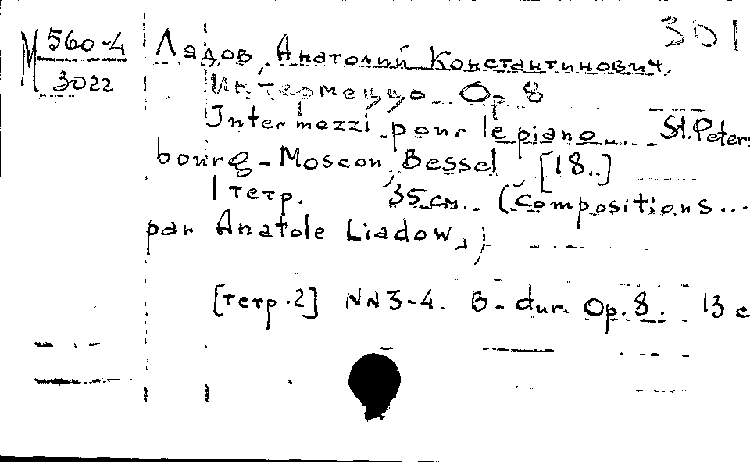 301
М 560-4
3022
Лядов, Анатолий Константинович.
Интермеццо. Op. 8
Intermezzi pour le piano... St. Peters
bourg - Moscou, Bessel [18..]
1 тетр. 35 см. (Compositions...
par Anatole Liadow.)
[тетр. 2] NN 3-4. B-dur. Op. 8. 13 с